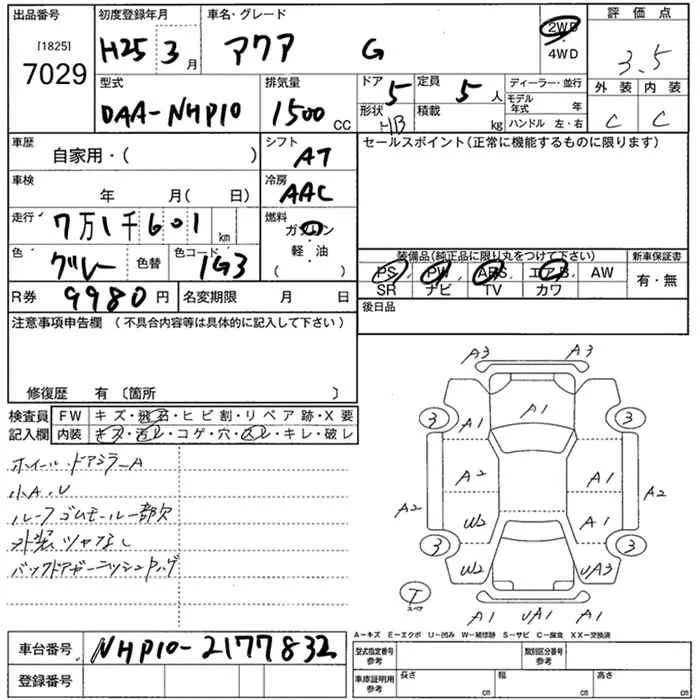 出品番号 初度登録年月 車名・グレード 評価点
[1825]
7029 H25 3月 アクア G 2WD・4WD 3.5
型式 排気量 ドア 定員 ディーラー・並行 外装 内装
DAA-NHP10 1500 CC 5 5人 モデル年式 年 C C
形状 HB 積載 kg ハンドル 左・右
車歴 シフト セールスポイント(正常に機能するものに限ります)
自家用・( ) AT
車検 冷房
年 月( 日) AAC
走行 燃料
7万1千601 km ガソリン
軽・油
( )
色 グレー 色替 色コード 1G3
装備品(純正品に限り丸をつけて下さい) 新車保証書
PS PW ABS エアB AW 有・無
SR ナビ TV カワ
R券 9980円 名変期限 月 日
後日品
注意事項申告欄(不具合内容等は具体的に記入して下さい)
修復歴 有〔箇所 〕
検査員 FW キズ・飛石・ヒビ割・リペア跡・X要
記入欄 内装 キズ・汚レ・コゲ・穴・スレ・キレ・破レ
ホイール・ドアミラーA
小A.U
ルーフゴムモール一部欠
外装ツヤなし
バックドアガーニッシュ
A3 A3
A1
3 A1 3
A2 A2 A1 A2
W2 A1
3 W2 UA3 3
T
スペア
A1 UA1 A1
A-キズ E-エクボ U-凹み W-補修跡 S-サビ C-腐食 XX-交換済
車台番号 NHP10-2177832
登録番号
型式指定番号 参考 類別区分番号 参考
車庫証明用 参考 長さ cm 幅 cm 高さ cm